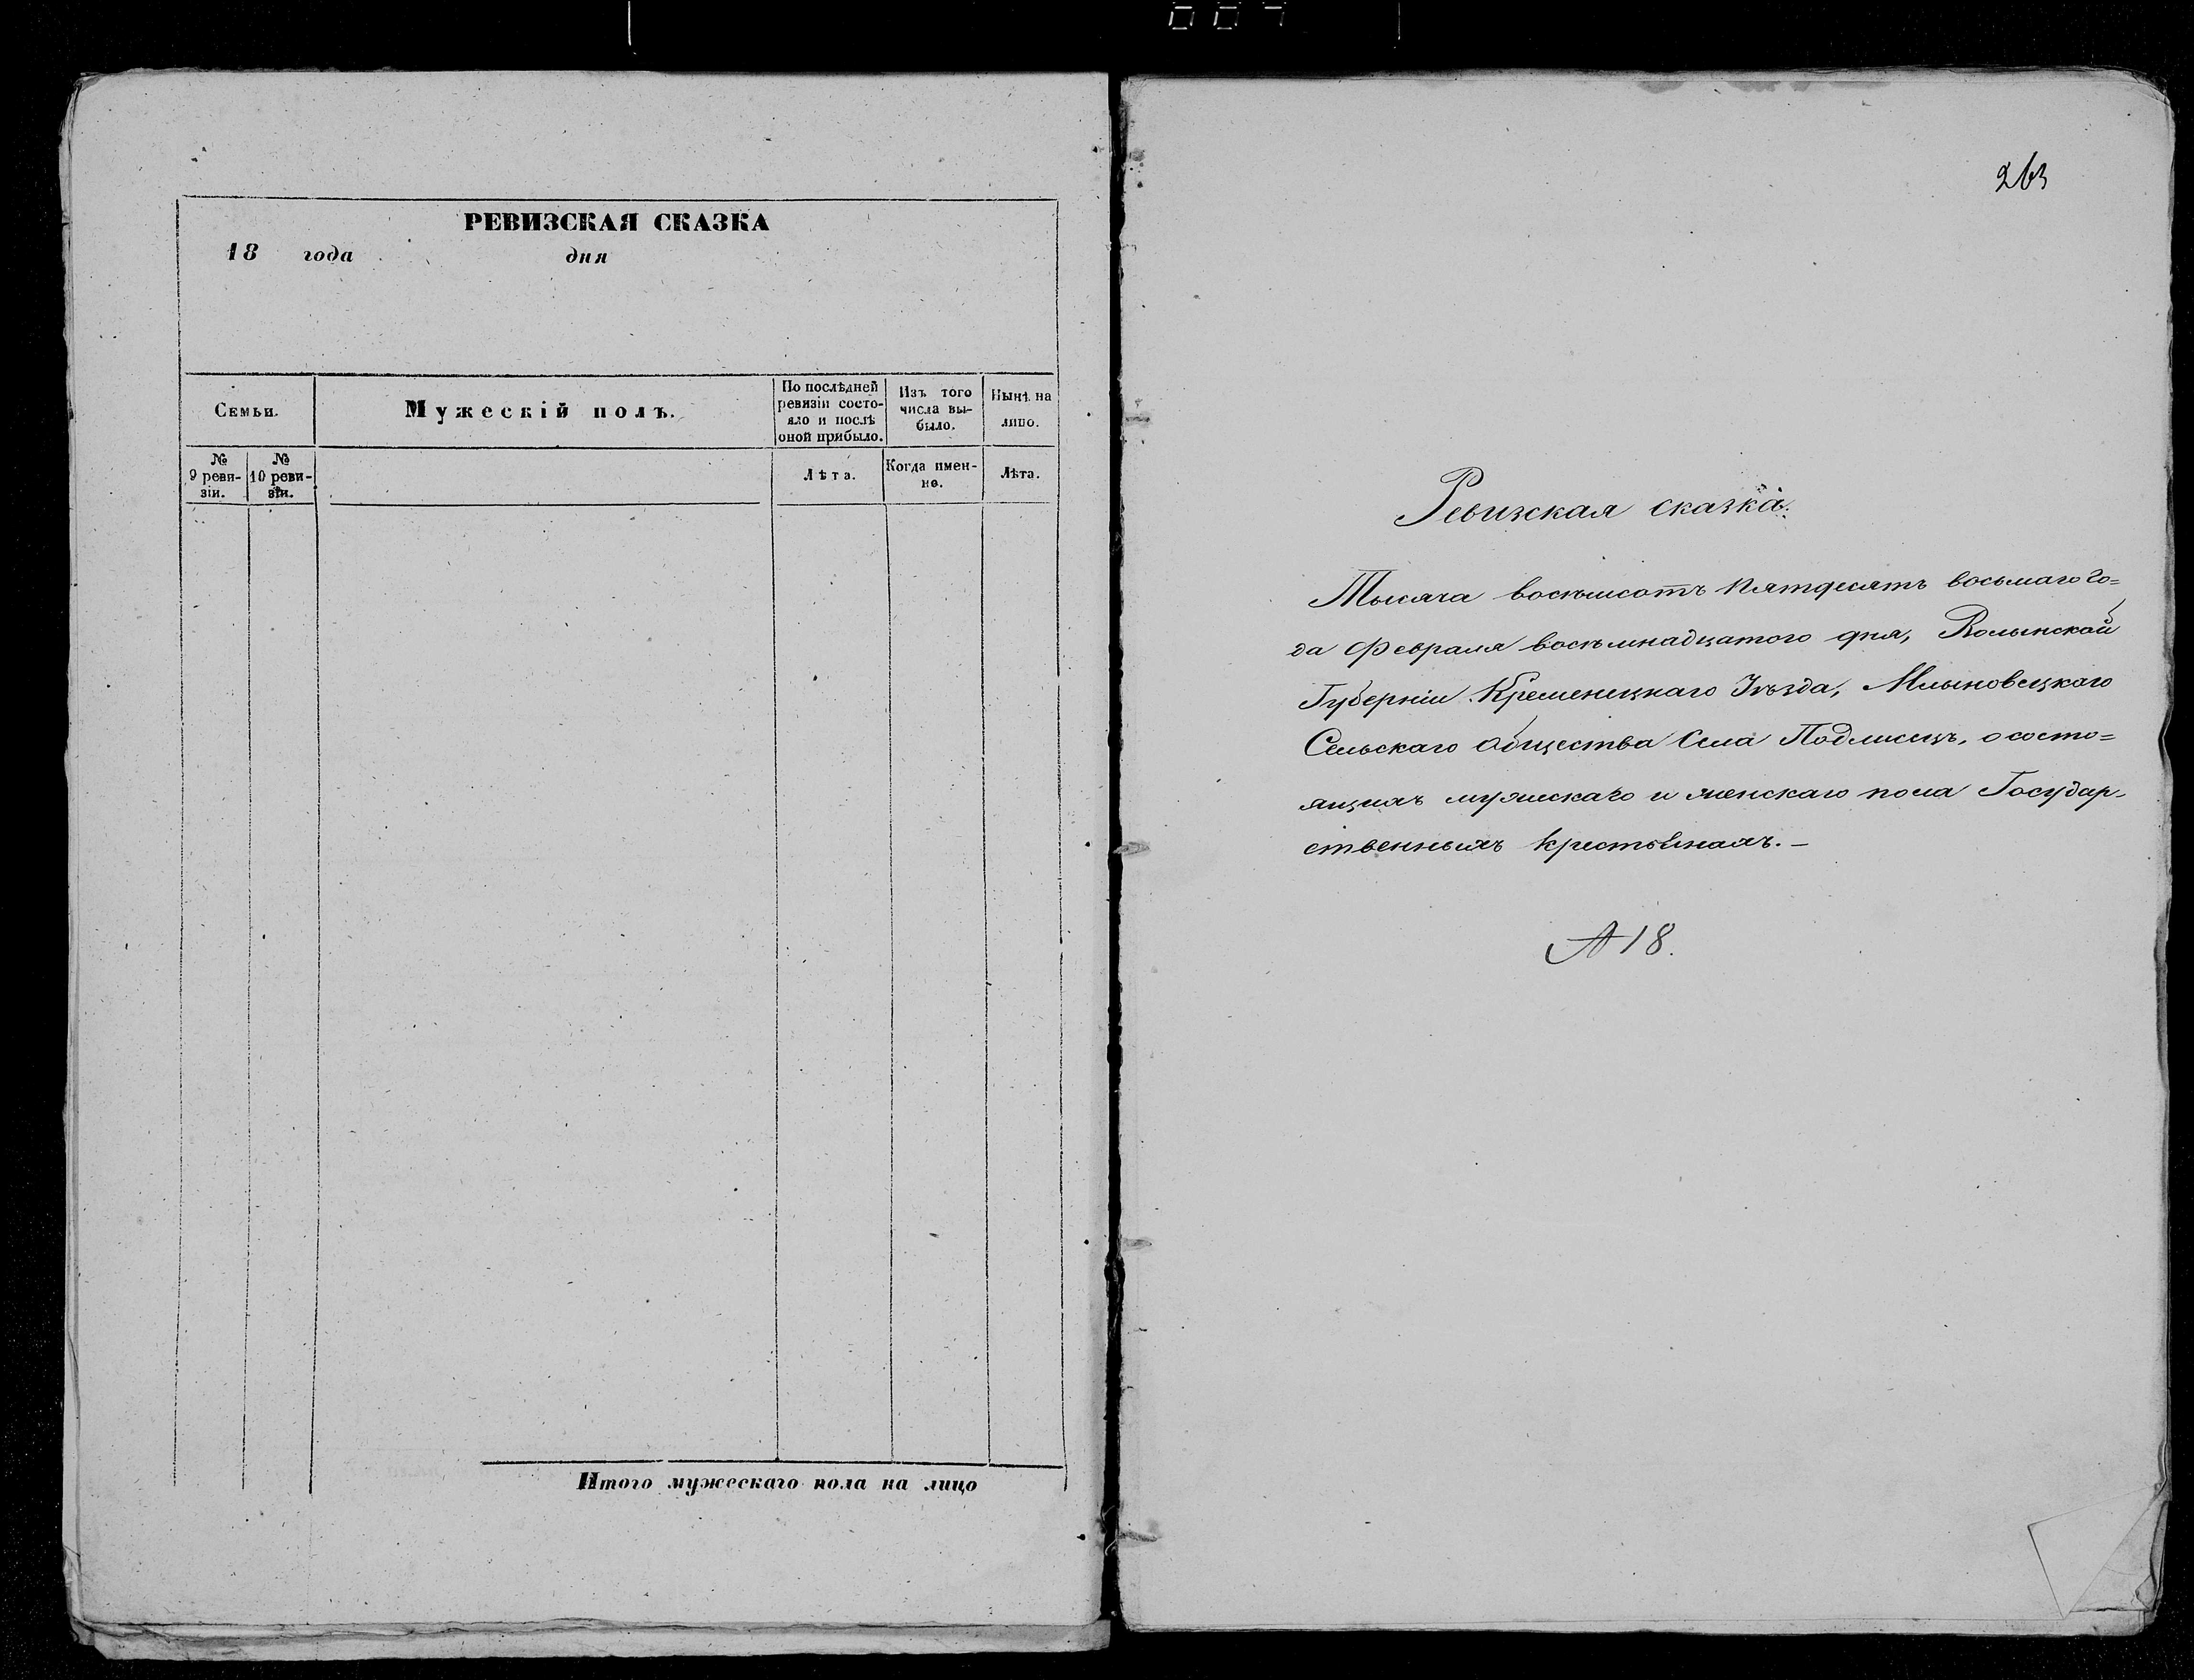 РЕВИЗСКАЯ СКАЗКА
18 года дня
Семьи.
Мужескій полъ.
По послѣдней
ревизіи состо-
яло и послѣ
оной прибыло.
Изъ того
числа вы-
было.
Нынѣ на
лицо.
№
9 реви-
зіи.
№
10 реви-
зіи.
Лѣта.
Когда имен-
но.
Лѣта.
Итого мужескаго пола на лицо
263
Ревизская сказка.
Тысяча восемсотъ пятдесятъ восьмаго го=
да Февраля восьмнадцатого дня, Волынской
Губерніи Кременецкаго Уѣзда, Млыновецкаго
Сельскаго общества Села Подлисецъ, о состо=
ящихъ мужескаго и женскаго пола Государ-
ственныхъ крестьянахъ.—
№ 18.